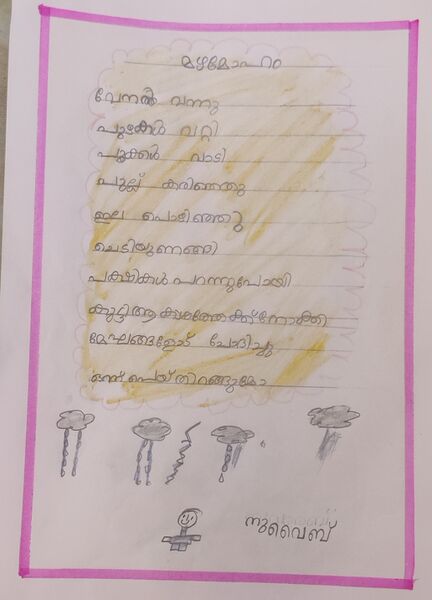 മഴമോഹം
വേനൽ വന്നു
പുഴകൾ വറ്റി
പൂക്കൾ വാടി
പുല്ല് കരിഞ്ഞു
ഇല പൊഴിഞ്ഞു
ചെടിയുണങ്ങി
പക്ഷികൾ പറന്നുപോയി
കുട്ടി ആകാശത്തേക്ക് നോക്കി
മേഘങ്ങളോട് ചോദിച്ചു
ഒന്ന് പെയ്തിറങ്ങുമോ
സുവൈബ്